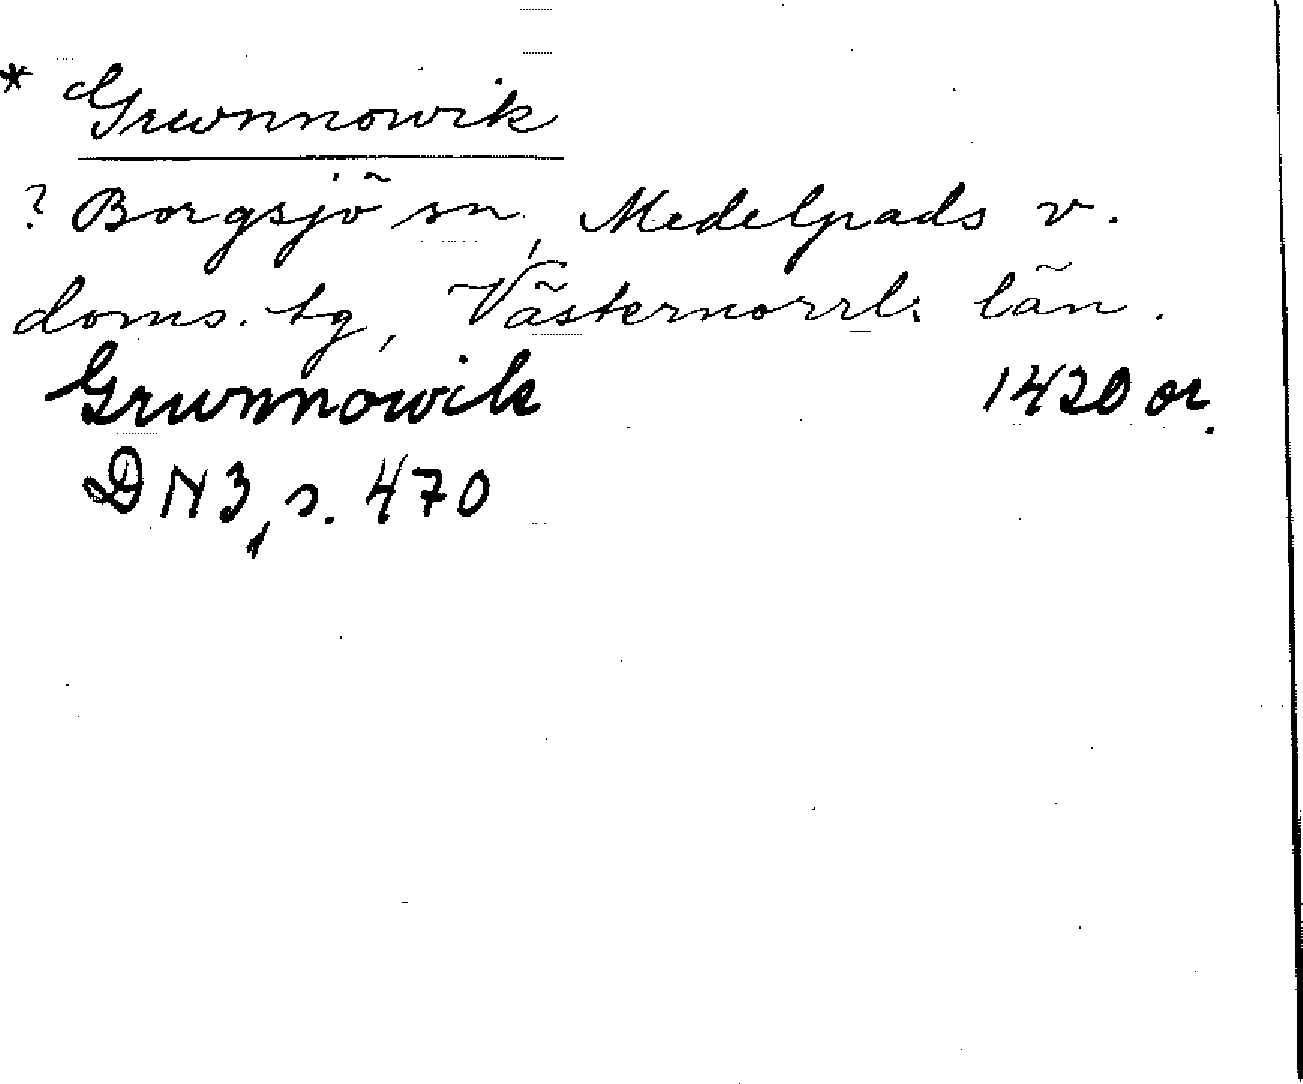 * Grwnnowik
? Borgsjö sn, Medelpads v.
doms. tg, Västernorrl:s län.
Grwnnowik 1420 or.
DN 3, s. 470